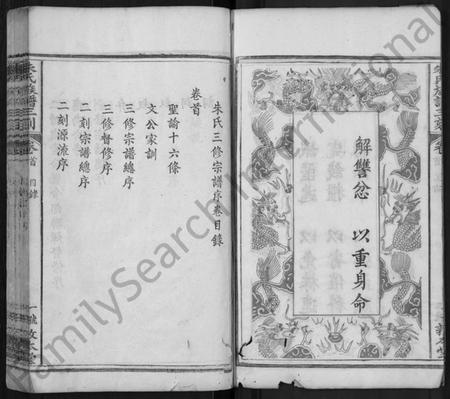 解讐忿 以重身命
朱氏三修宗譜序卷目錄
卷首
聖諭十六條
文公家訓
三修宗譜總序
三修督修序
二刻宗譜總序
二刻源流序
朱氏族譜三刻
卷首 目錄
FamilySearch International